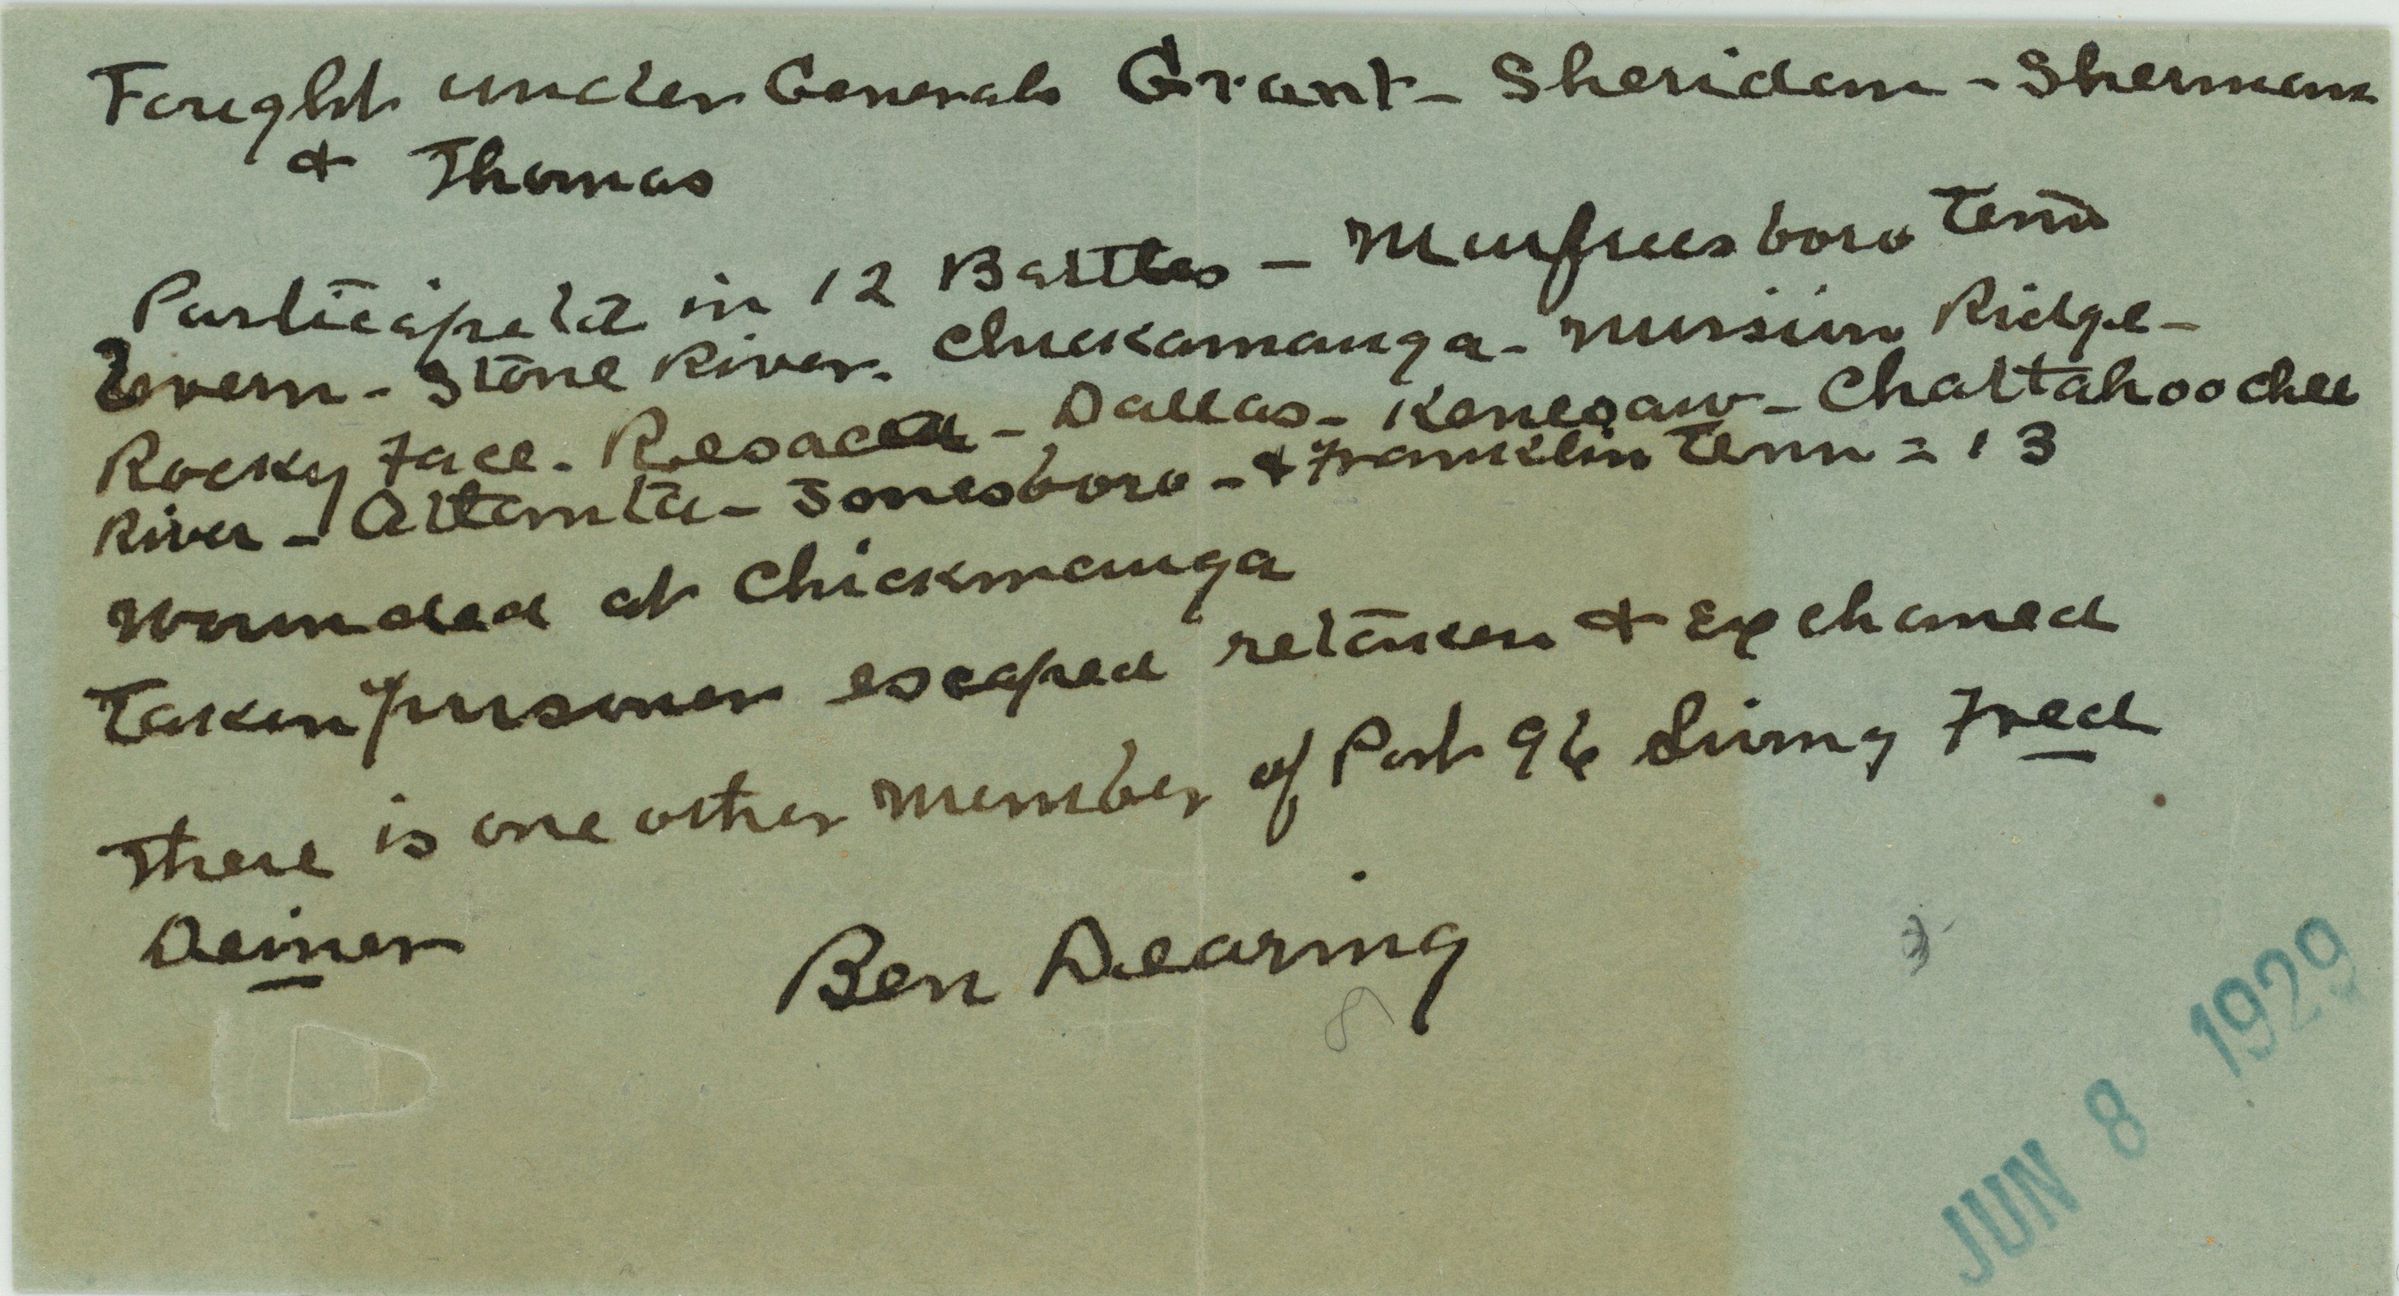 Fought under Generals Grant - Sheridan - Sherman
& Thomas
Participated in 12 Battles - Murfreesboro Tenn
- Stone River. Chickamauga - Mission Ridge -
Rocky Face. Resaca - Dallas - Kenesaw - Chattahoochee
River - Attlanta - Jonesboro - & Franklin Tenn = 13
Wounded at Chickmauga
Taken prisoner escaped retaken & Exchaned
There is one other member of Post 96 Living Fred
Deiner
Ben Dearing
JUN 8 1929